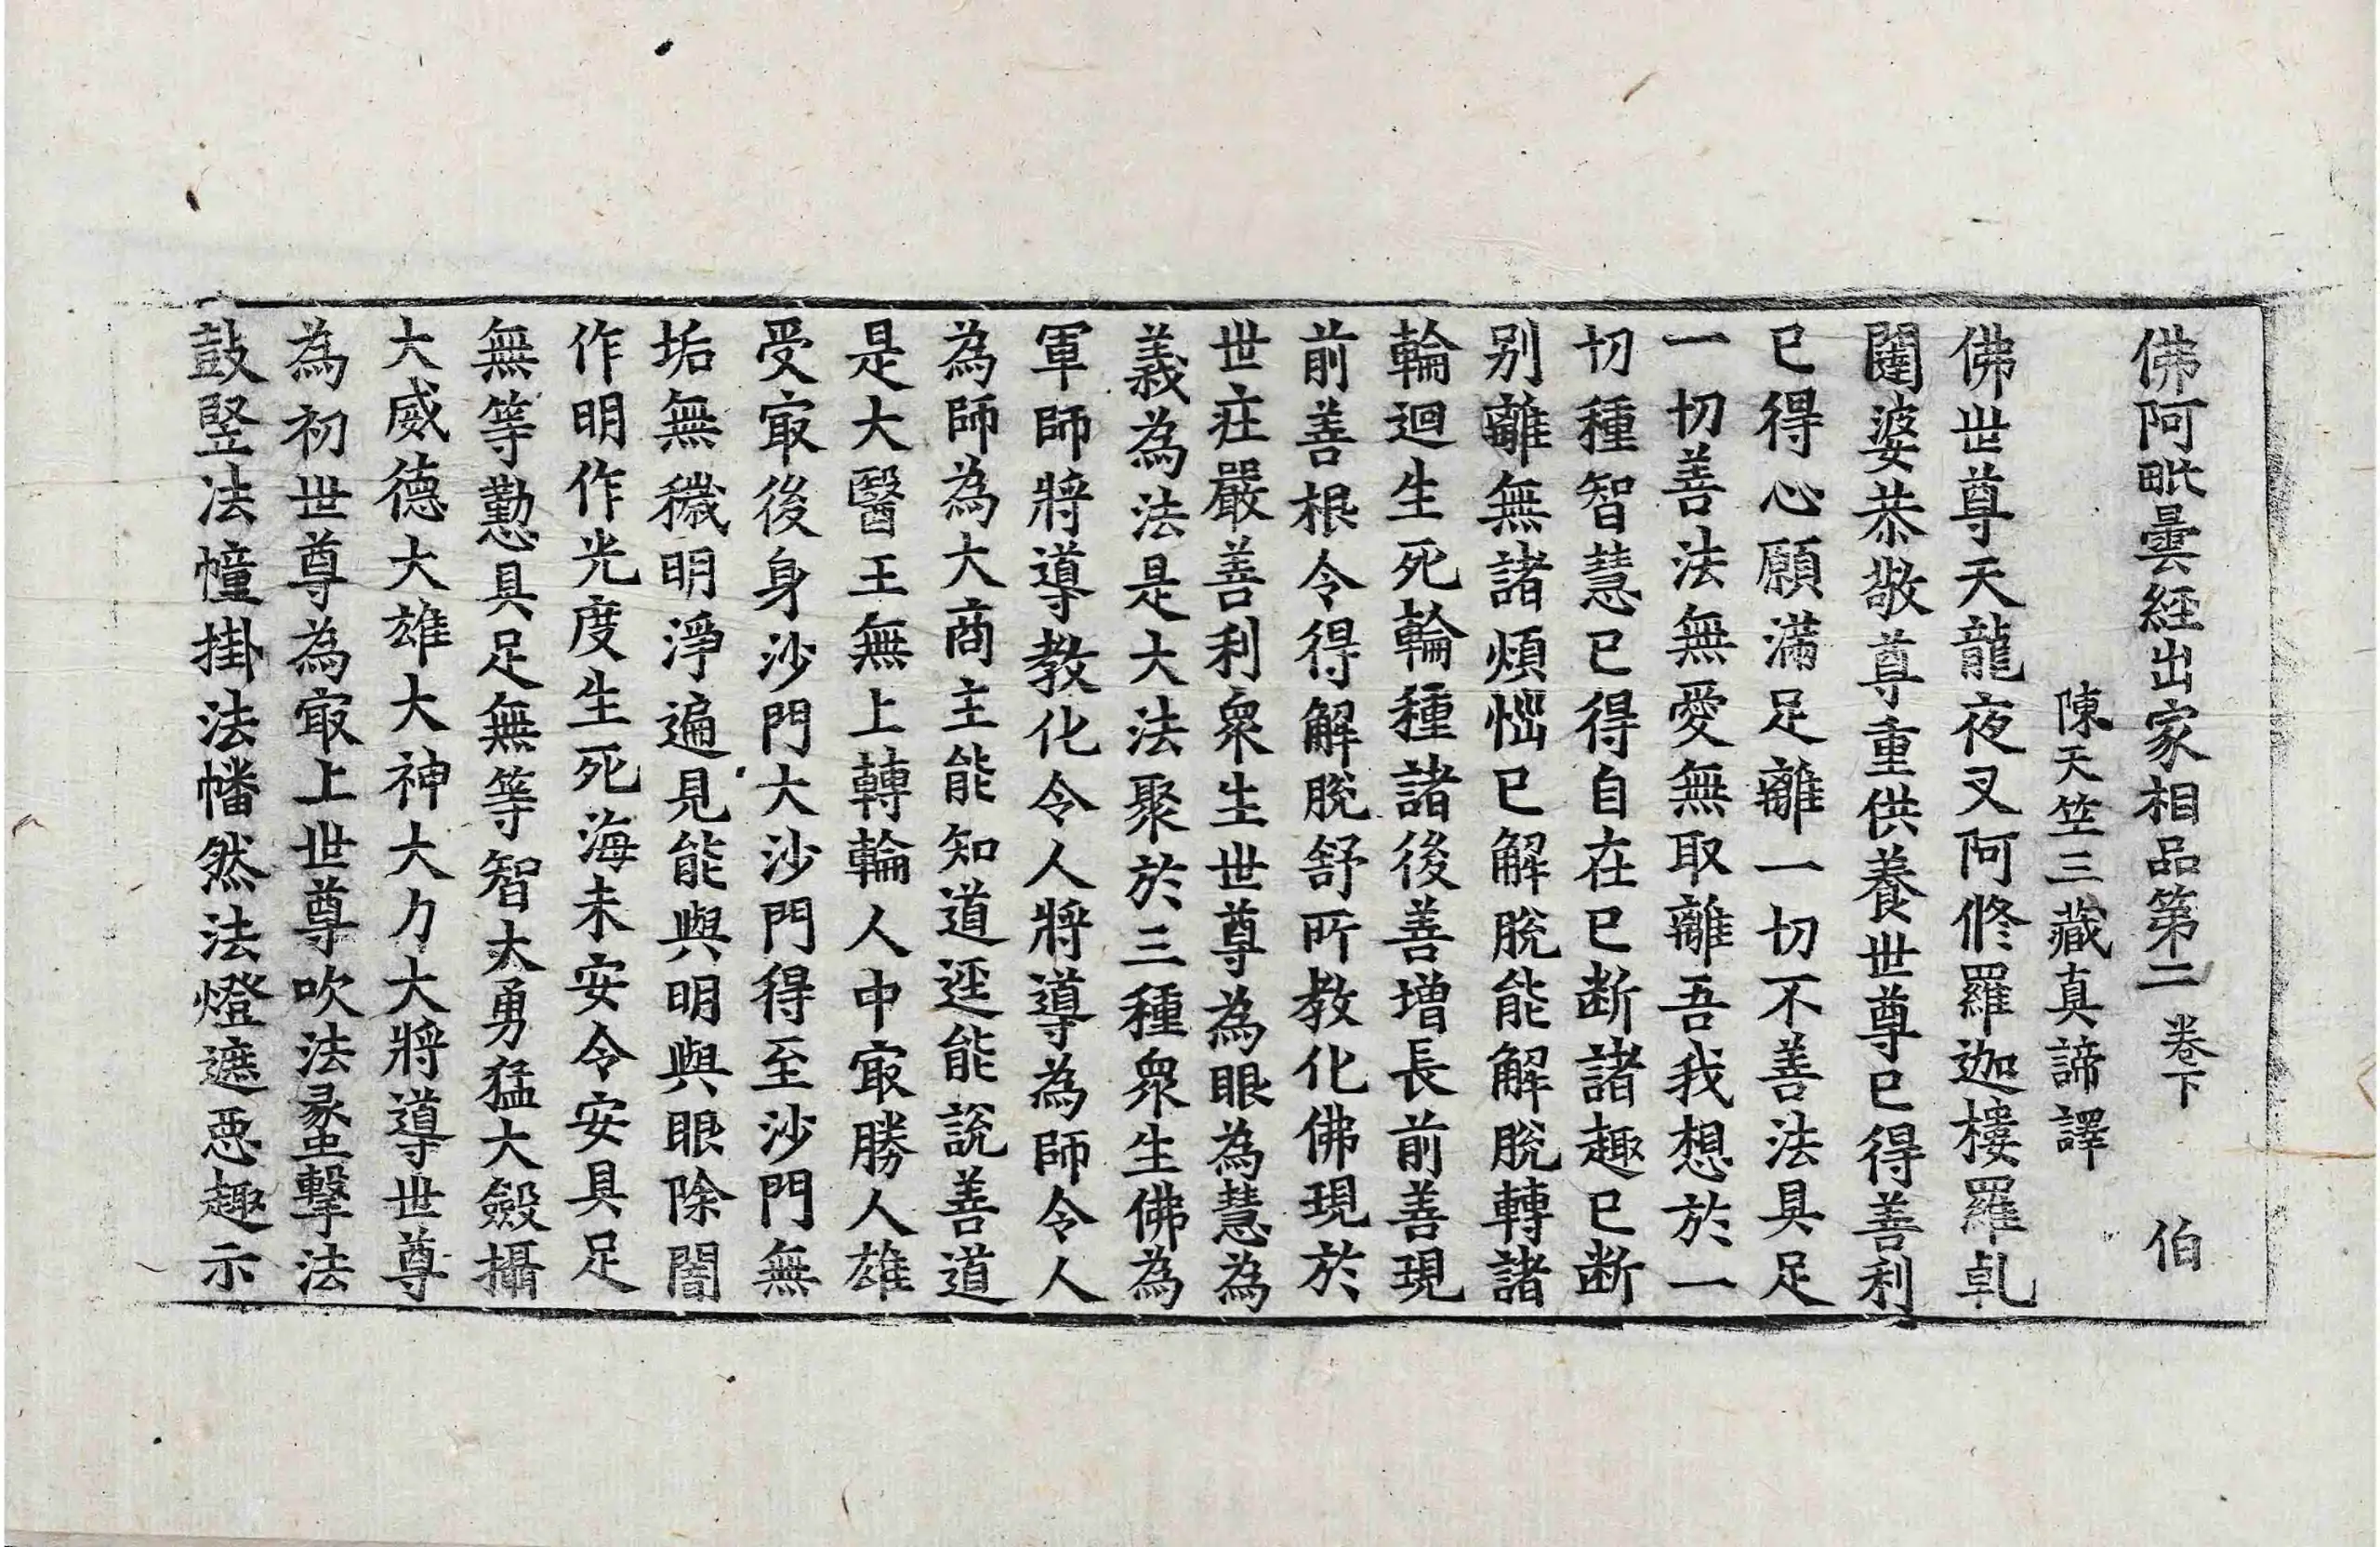 佛阿毗曇経出家相品第二 卷下 伯
陳天竺三藏真諦譯
佛世尊天龍夜叉阿修羅迦樓羅乹
闥婆恭敬尊重供養世尊已得善利
已得心願滿足離一切不善法具足
一切善法無愛無取離吾我想於一
切種智慧已得自在已断諸趣已断
别離無諸煩惱已解脫能解脫轉諸
輪迴生死輪種諸後善增長前善現
前善根令得解脫舒所教化佛現於
世莊嚴善利衆生世尊為眼為慧為
義為法是大法聚於三種衆生佛為
軍師將導教化令人將導為師令人
為師為大商主能知道逕能說善道
是大醫王無上轉輪人中㝡勝人雄
受㝡後身沙門大沙門得至沙門無
垢無穢明淨遍見能與明與眼除闇
作明作光度生死海未安令安具足
無等懃具足無等智大勇猛大斂攝
大威德大雄大神大力大將導世尊
為初世尊為㝡上世尊吹法蠡擊法
鼓竪法幢掛法幡然法燈遮惡趣示